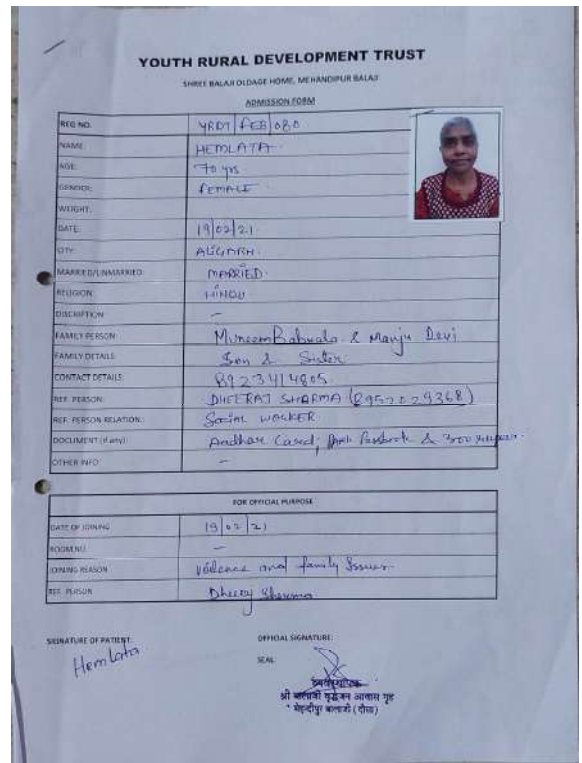 YOUTH RURAL DEVELOPMENT TRUST
SHREE BALAJI OLDAGE HOME, MEHANDIPUR BALAJI
ADMISSION FORM
REG NO. YRDT/FEB/080
NAME: HEMLATA
AGE: 70 yrs
GENDER: FEMALE
WEIGHT:
DATE: 19/02/21
CITY: ALIGARH
MARRIED/UNMARRIED: MARRIED
RELIGION HINDU
DISCRIPTION –
FAMILY PERSON Muneem Babuala & Manju Devi
FAMILY DETAILS Son & Sister
CONTACT DETAILS 8923414805
REF. PERSON DHEERAJ SHARMA (8952029368)
REF. PERSON RELATION Social WORKER
DOCUMENT (if any) Aadhar Card, Passbook & 300
OTHER INFO –
FOR OFFICIAL PURPOSE
DATE OF JOINING 19/02/21
ROOM NO –
JOINING REASON Violence and family Issues
REF. PERSON Dheeraj Sharma
SIGNATURE OF PATIENT: OFFICIAL SIGNATURE:
Hemlata
SEAL:
व्यवस्थापक
श्री बालाजी वृद्धजन आवास गृह
मेहन्दीपुर बालाजी (दौसा)